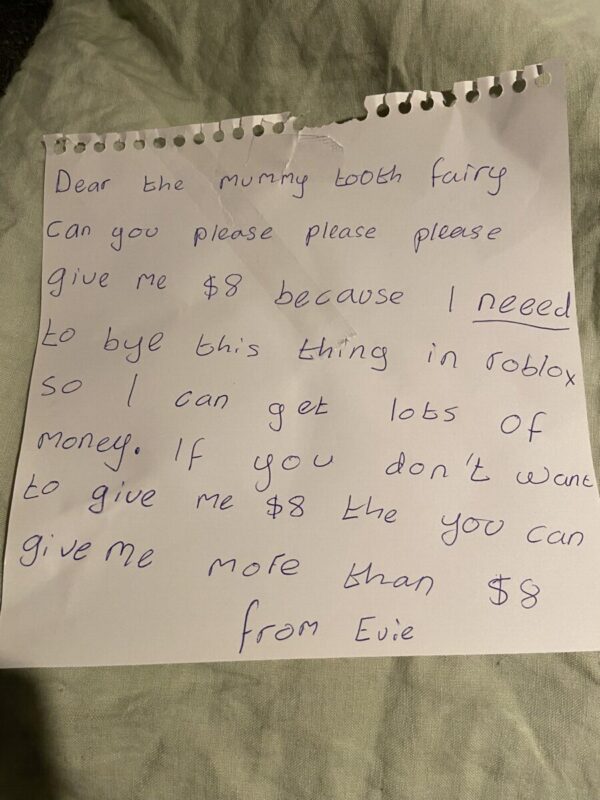 Dear the mummy tooth fairy
can you please please please
give me $8 because I neeed
to bye this thing in roblox
so I can get lots of
money. If you don't want
to give me $8 the you can
give me more than $8
from Evie